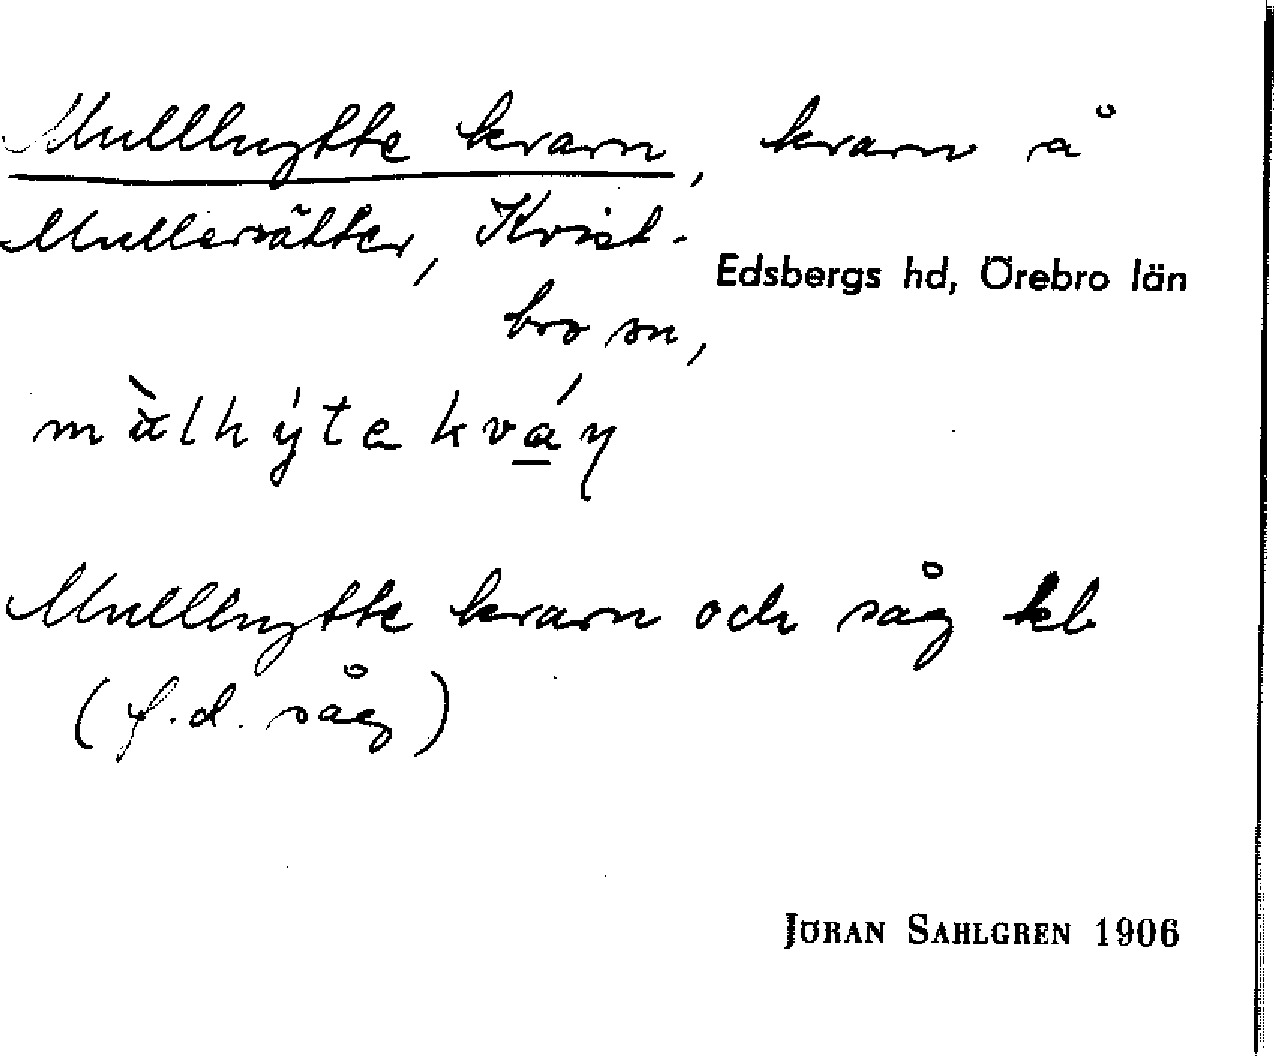 Mullhytte kvarn, kvarn å
Mullersätter, Kvist-
Edsbergs hd, Örebro län
bro sn,
Mullhytte kvarn och såg kb
(f.d. såg)
JÖRAN SAHLGREN 1906